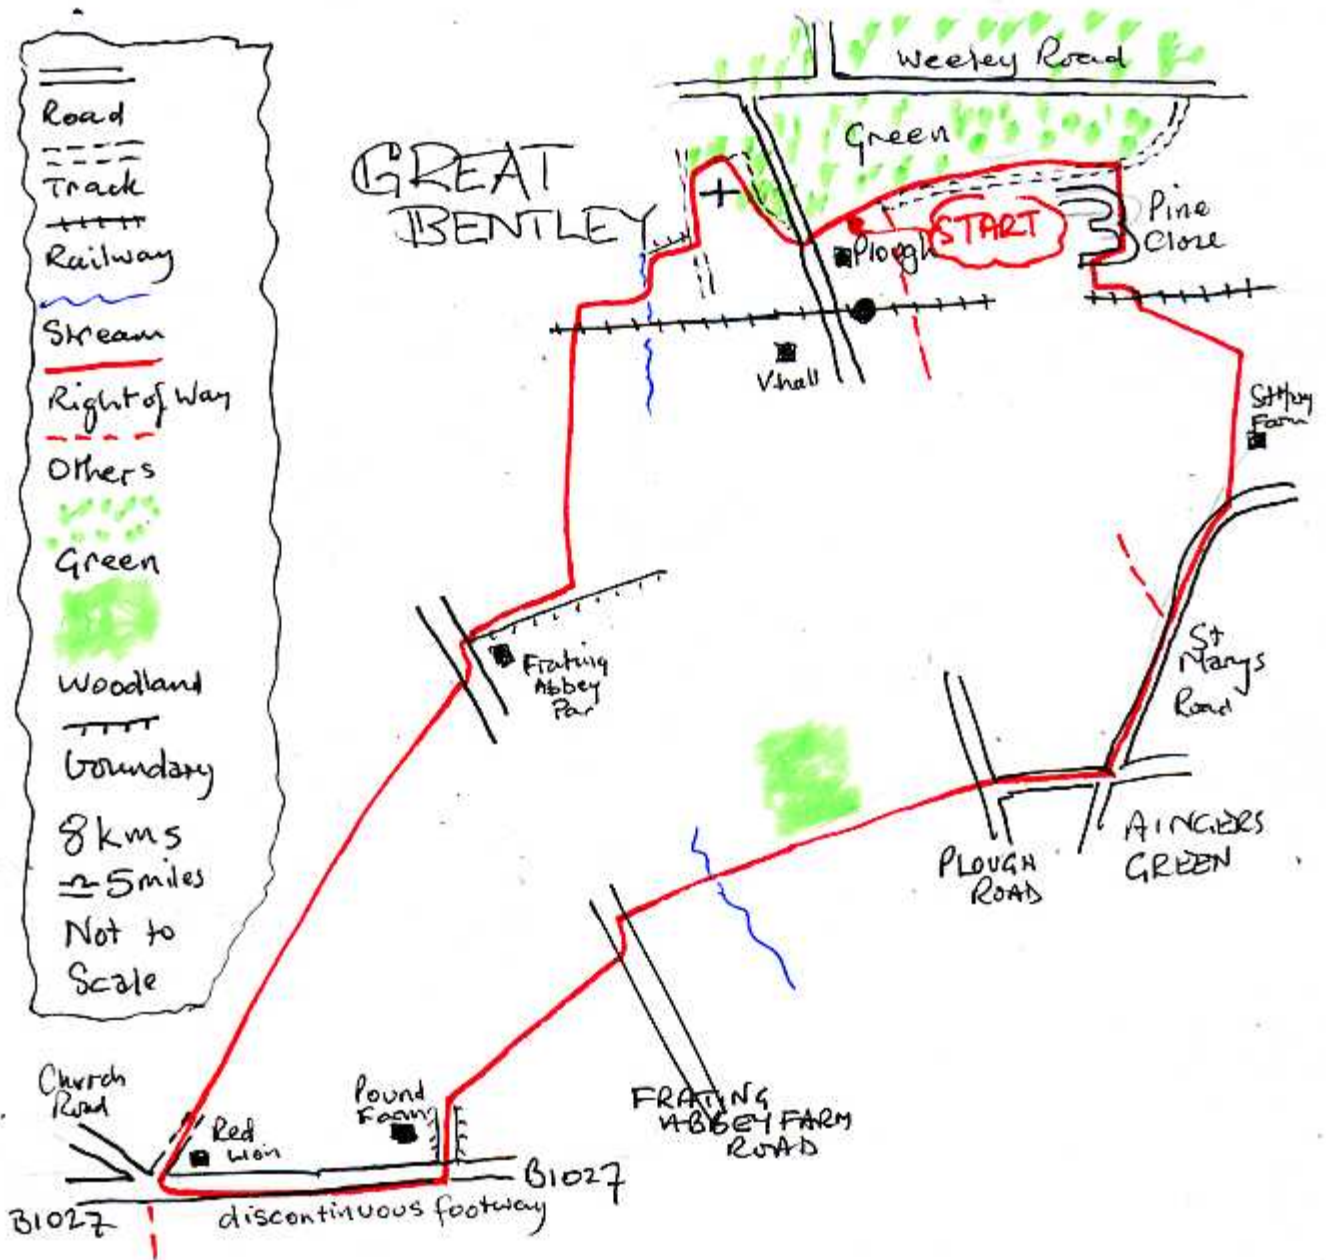 Road
Track
Railway
Stream
Right of Way
Others
Green
Woodland
boundary
8 kms
≏ 5 miles
Not to
Scale
GREAT
BENTLEY
Weeley Road
Green
START
Plough
Pine
Close
V.hall
Farm
Frating
Abbey
Far
St
Marys
Road
PLOUGH
ROAD
AINGERS
GREEN
FRATING
ABBEY FARM
ROAD
Church
Road
Red
Lion
Pound
Farm
B1027
B1027
discontinuous footway